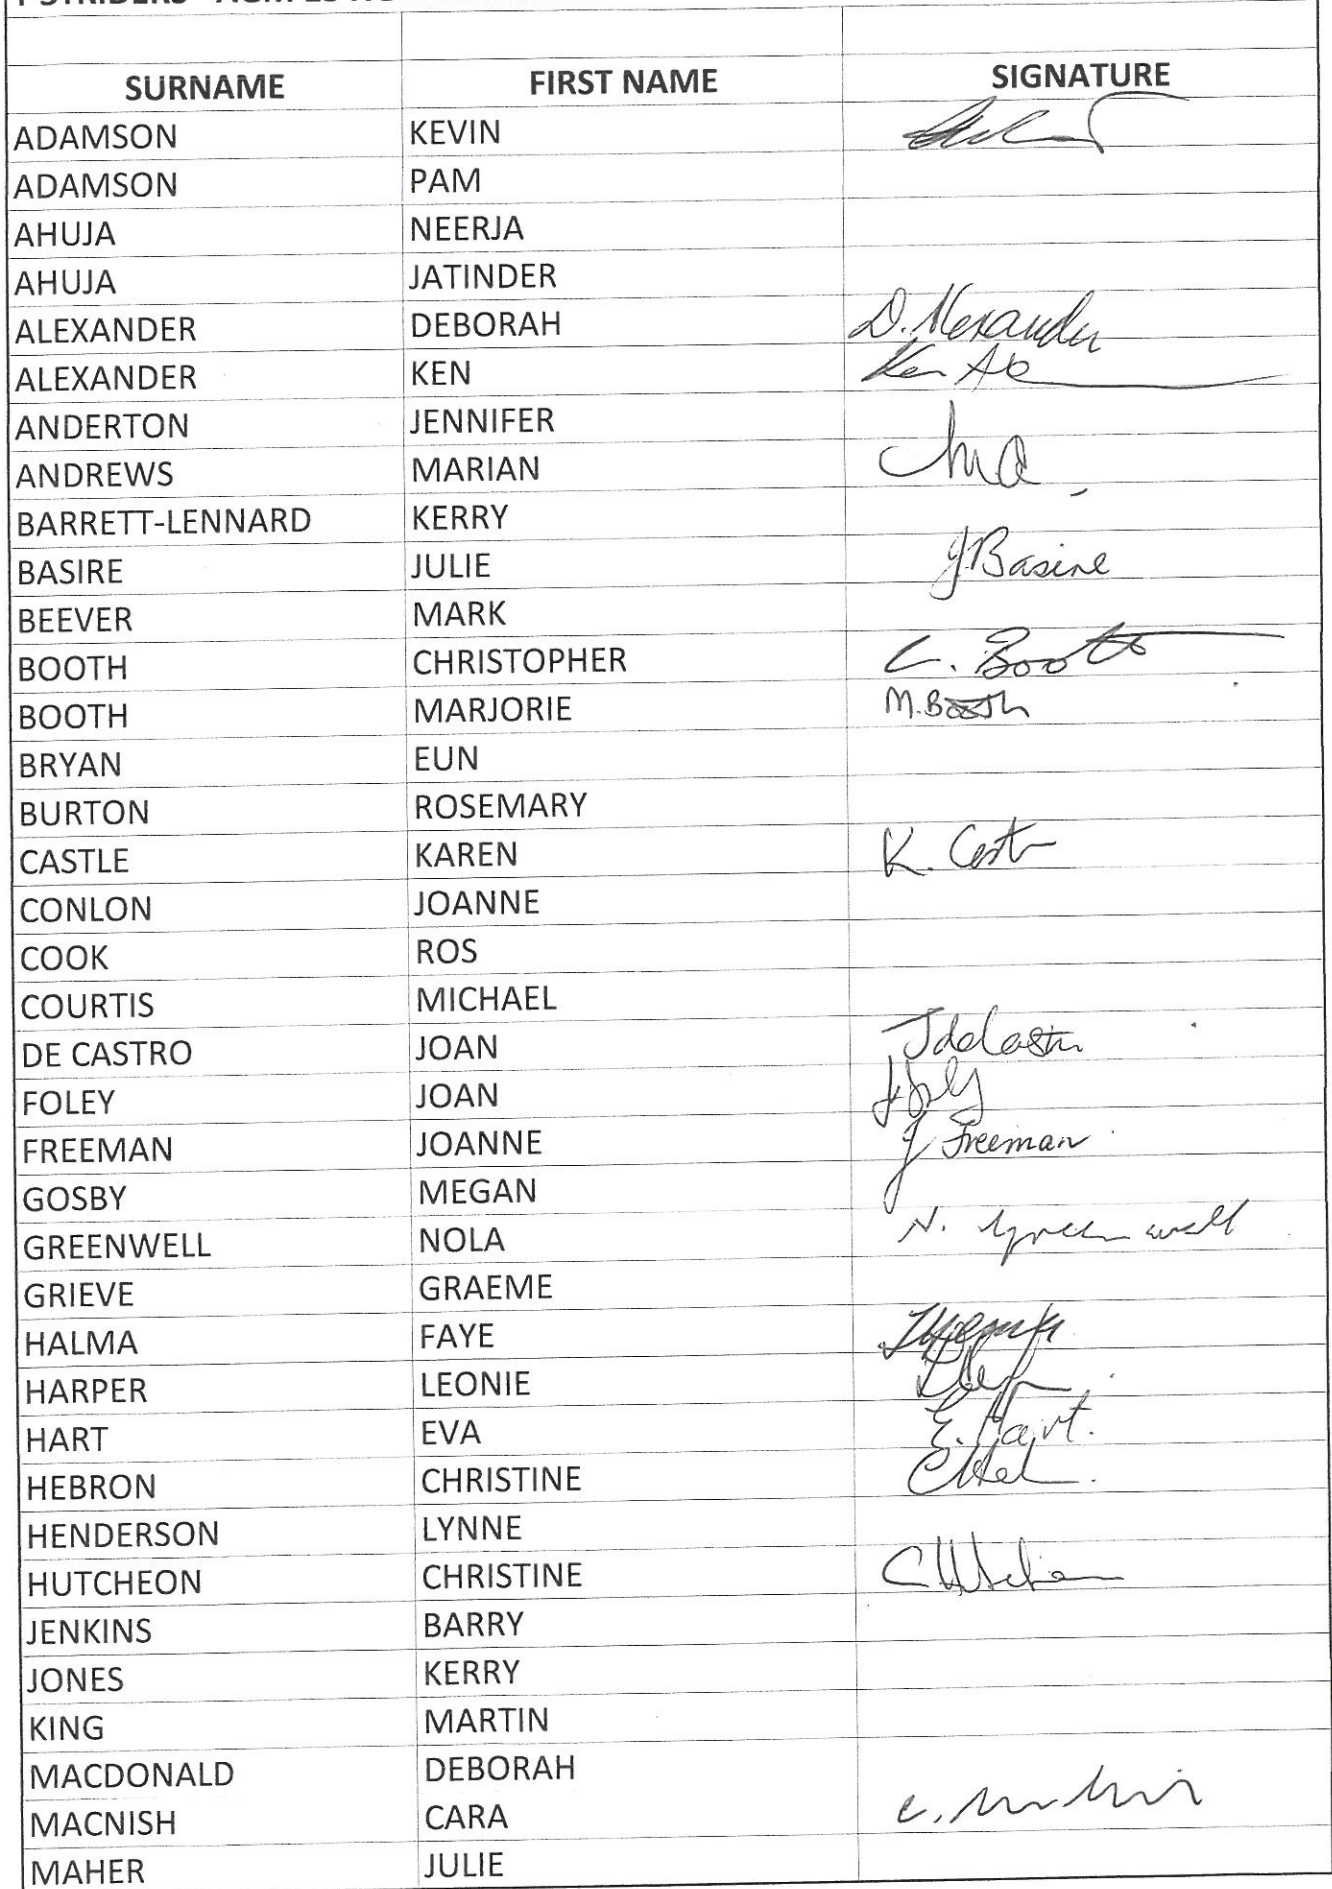 SURNAME FIRST NAME SIGNATURE
ADAMSON KEVIN
ADAMSON PAM
AHUJA NEERJA
AHUJA JATINDER
ALEXANDER DEBORAH D. Alexander
ALEXANDER KEN Ken
ANDERTON JENNIFER
ANDREWS MARIAN
BARRETT-LENNARD KERRY
BASIRE JULIE J Basire
BEEVER MARK
BOOTH CHRISTOPHER C. Booth
BOOTH MARJORIE M. Booth
BRYAN EUN
BURTON ROSEMARY
CASTLE KAREN K.
CONLON JOANNE
COOK ROS
COURTIS MICHAEL
DE CASTRO JOAN J de Castro
FOLEY JOAN
FREEMAN JOANNE J Freeman
GOSBY MEGAN
GREENWELL NOLA N. Greenwell
GRIEVE GRAEME
HALMA FAYE
HARPER LEONIE
HART EVA E. Hart.
HEBRON CHRISTINE
HENDERSON LYNNE
HUTCHEON CHRISTINE
JENKINS BARRY
JONES KERRY
KING MARTIN
MACDONALD DEBORAH
MACNISH CARA
MAHER JULIE